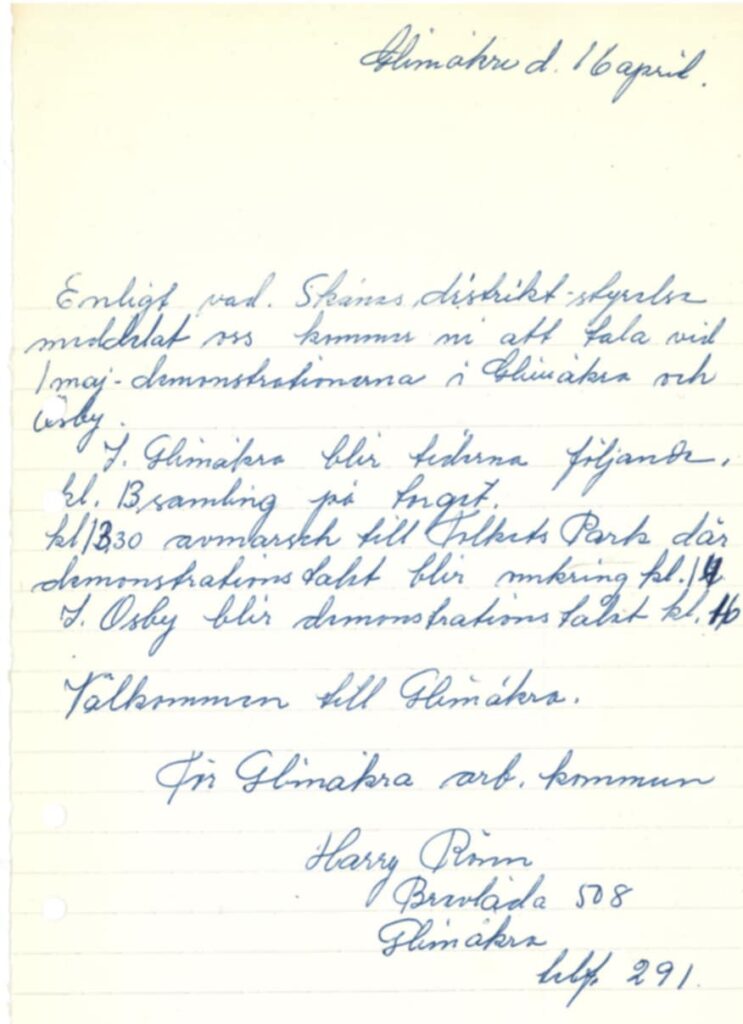 Glimåkra d. 16 april.
Enligt vad. Skånes distrikt-styrelse
meddelat oss kommer ni att tala vid
1 maj-demonstrationerna i Glimåkra och
Osby.
I. Glimåkra blir tiderna följande.
kl. 13 samling på torget.
kl 13,30 avmarsch till Folkets Park där
demonstrationstalet blir omkring kl. 14
I. Osby blir demonstrationstalet kl. 16
Välkommen till Glimåkra.
För Glimåkra arb. kommun
Harry Rönn
Brevlåda 508
Glimåkra
telf. 291.